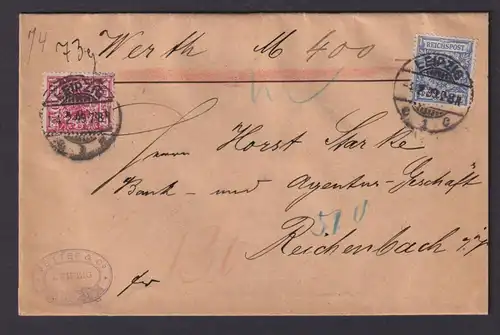 74
73 g
Werth M 400
REICHSPOST
LEIPZIG
LEIPZIG
Herrn Horst Starke
Bank- und Agentur-Geschäft
Reichenbach i/V
fr
& Co
LEIPZIG